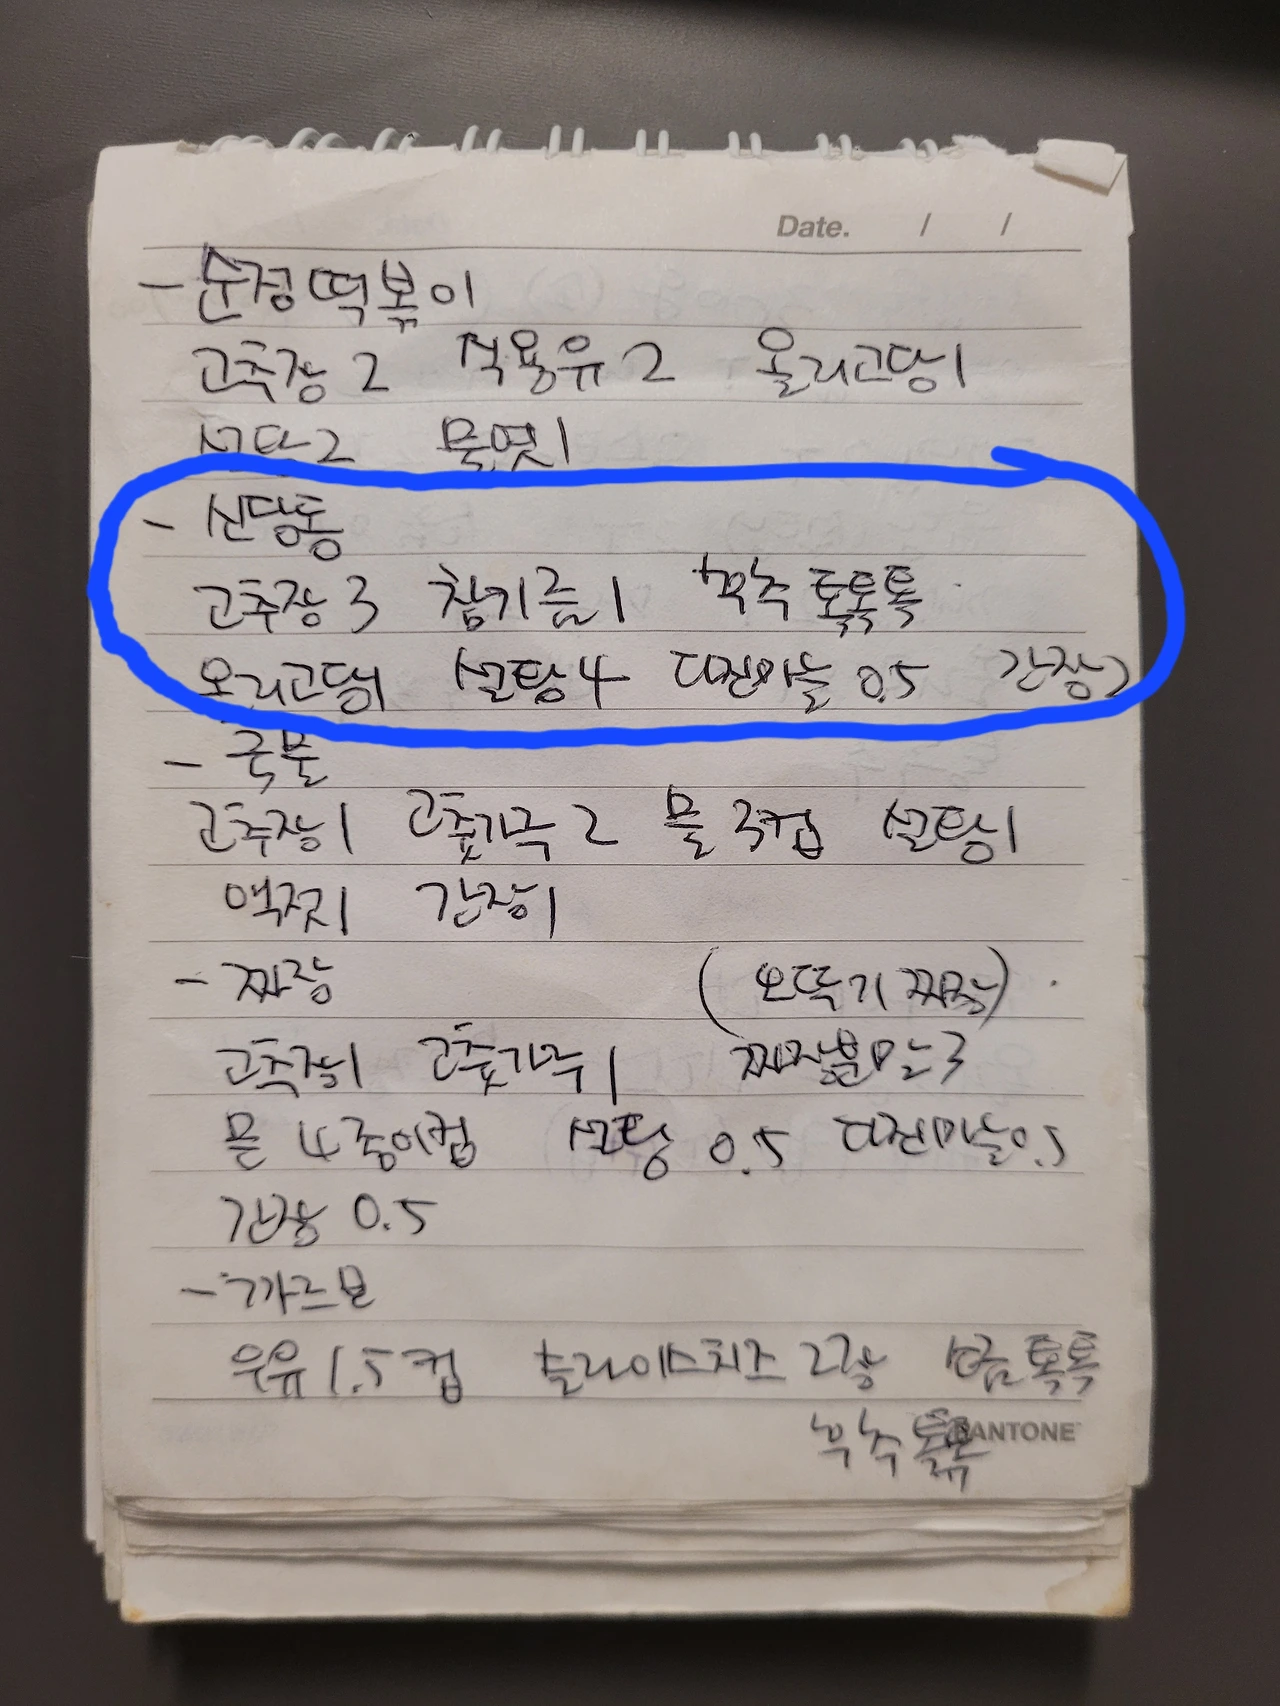 Date. / /
- 순정떡볶이
고추장 2 식용유 2 올리고당 1
설탕 2 물엿 1
- 신당동
고추장 3 참기름 1 후추 톡톡톡
올리고당 1 설탕 4 다진마늘 0.5 간장 2
- 국물
고추장 1 고춧가루 2 물 3컵 설탕 1
액젓 1 간장 1
- 짜장 (오뚜기 짜장)
고추장 1 고춧가루 1 짜장분말 3
물 4 종이컵 설탕 0.5 다진마늘 0.5
간장 0.5
- 까르보
우유 1.5컵 슬라이스치즈 2장 소금 톡톡
후추 톡톡 PANTONE